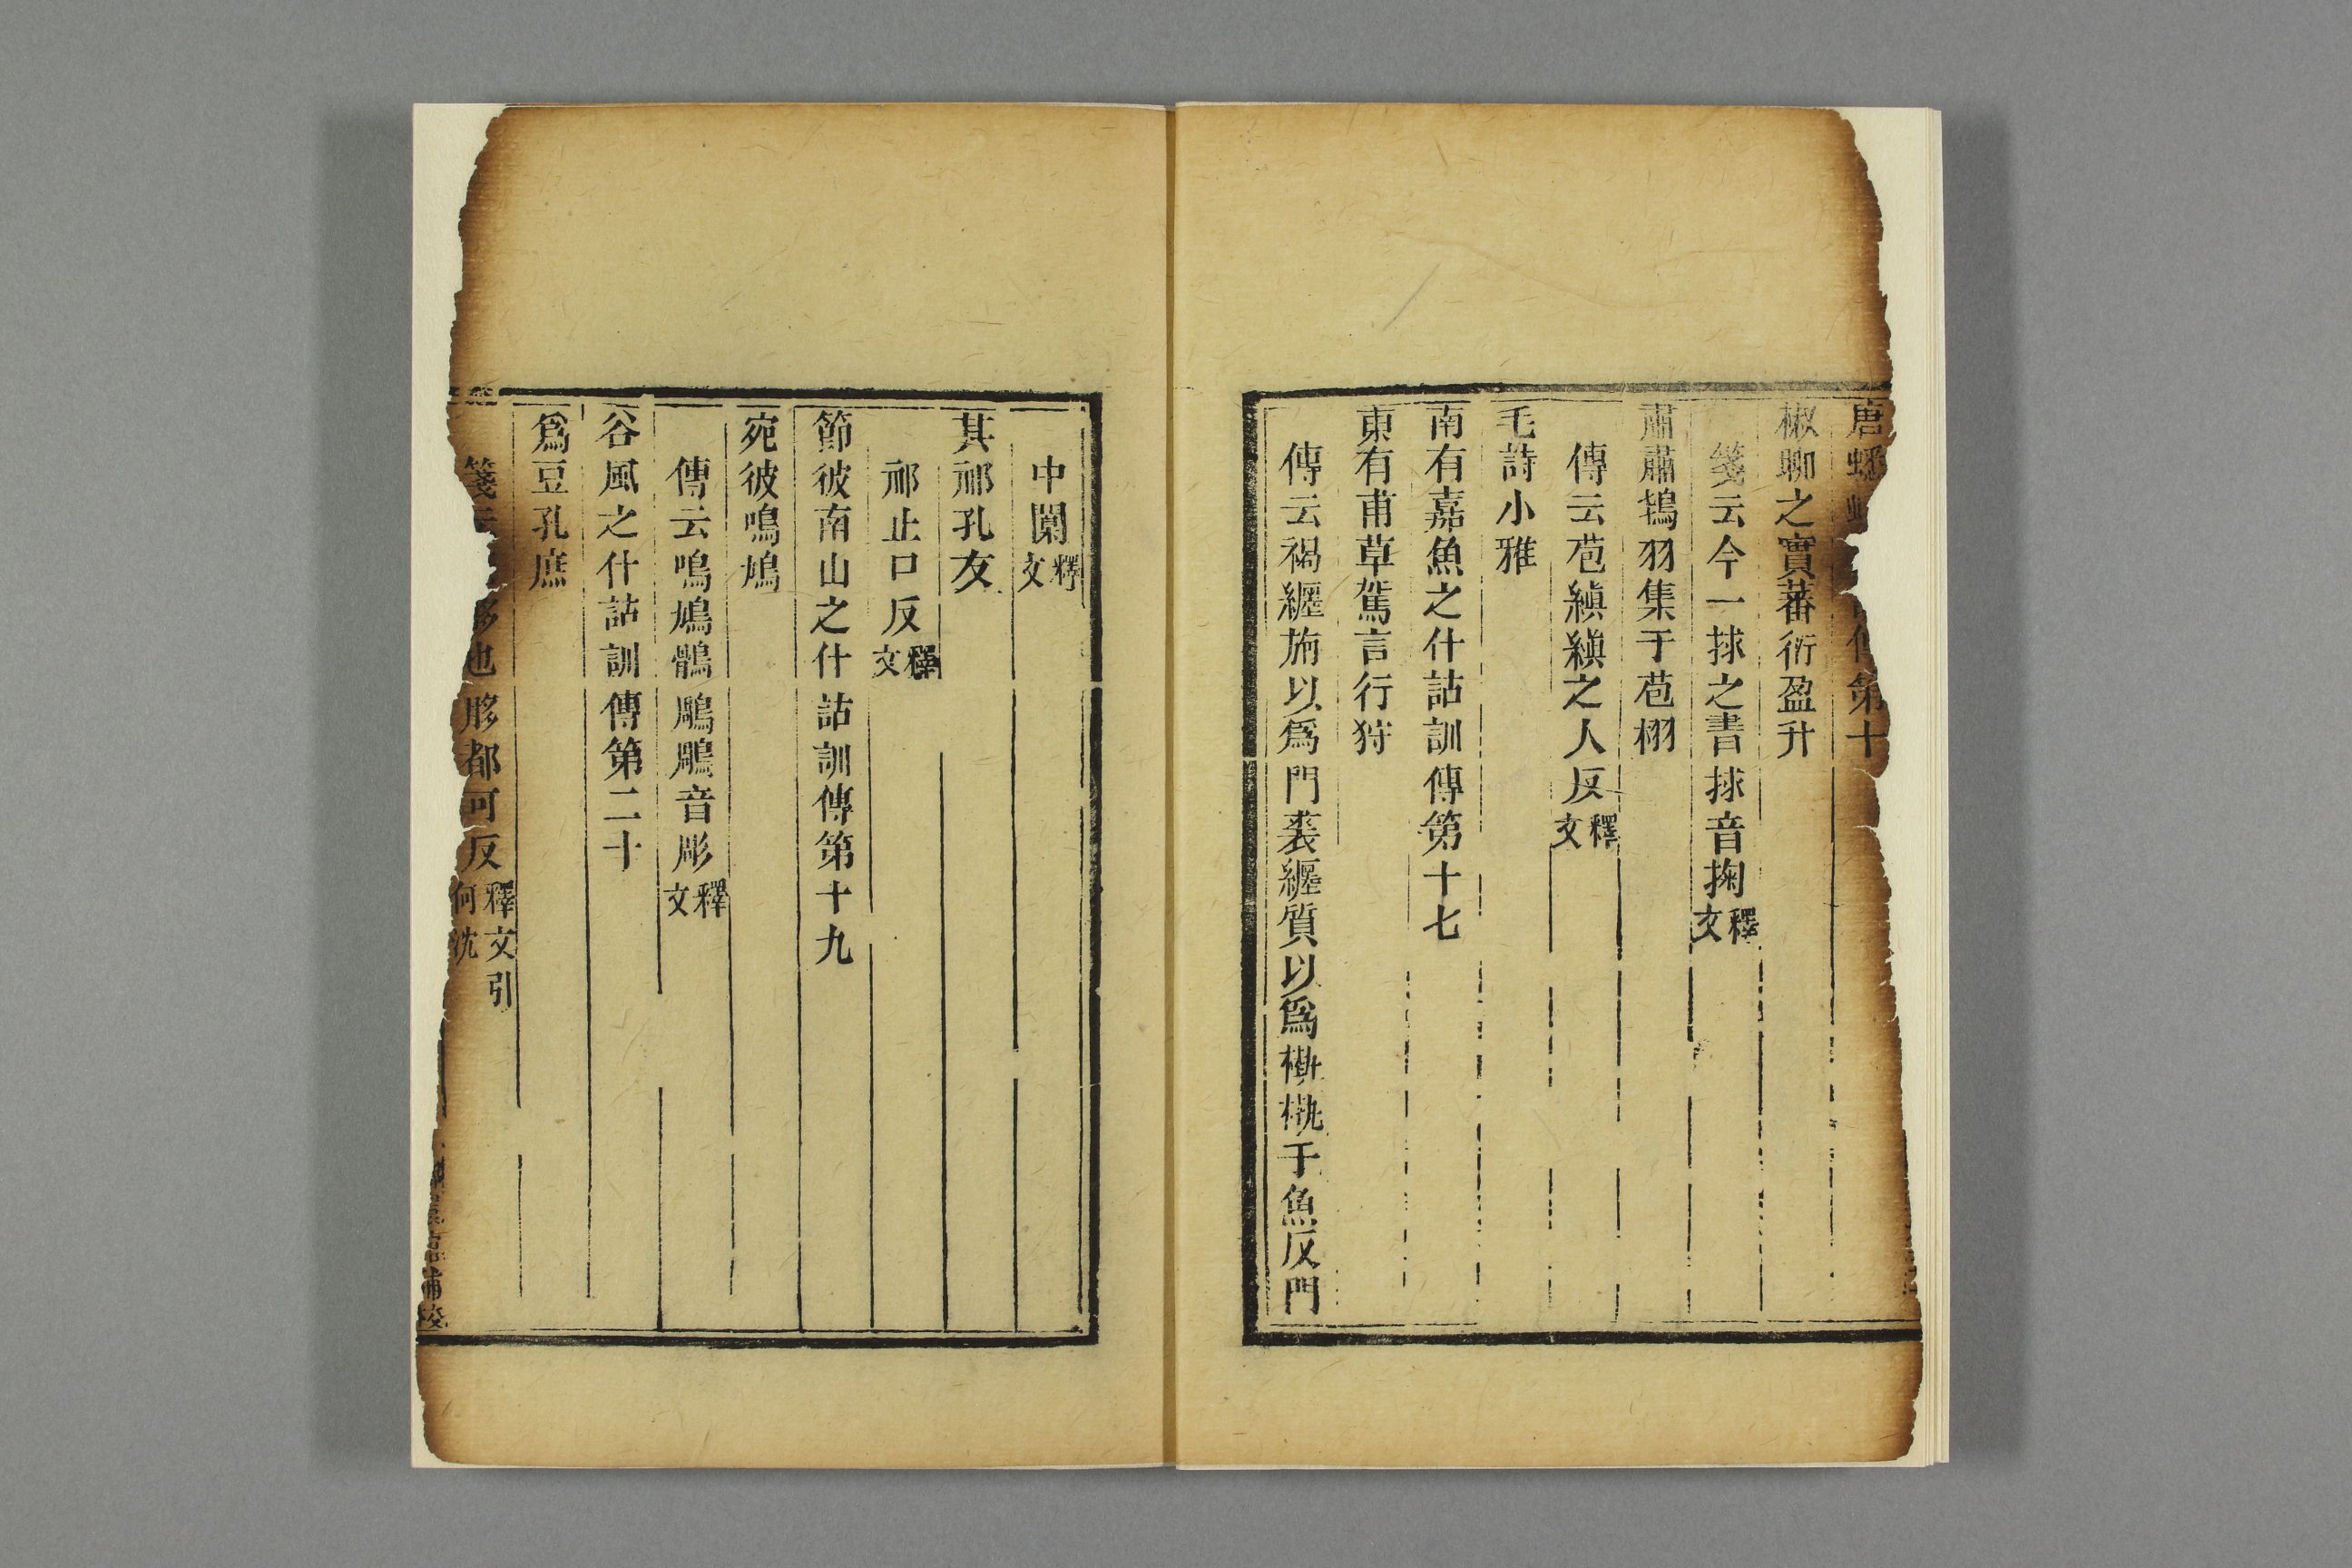 唐蟋第十
椒聊之實蕃衍盈升
箋云今一捄之書捄音掬釋文
肅肅鴇羽集于苞栩
傳云苞縝縝之人反釋文
毛詩小雅
南有嘉魚之什詁訓傳第十七
東有甫草駕言行狩
傳云褐纏旃以爲門裘纏質以爲槸槸于魚反門
中闑釋文
其祁孔友
祁止口反釋文
節彼南山之什詁訓傳第十九
宛彼鳴鳩
傳云鳴鳩鶻鵰鵰音彫釋文
谷風之什詁訓傳第二十
爲豆孔庶
箋也䏧都可反釋文引沈何
補校